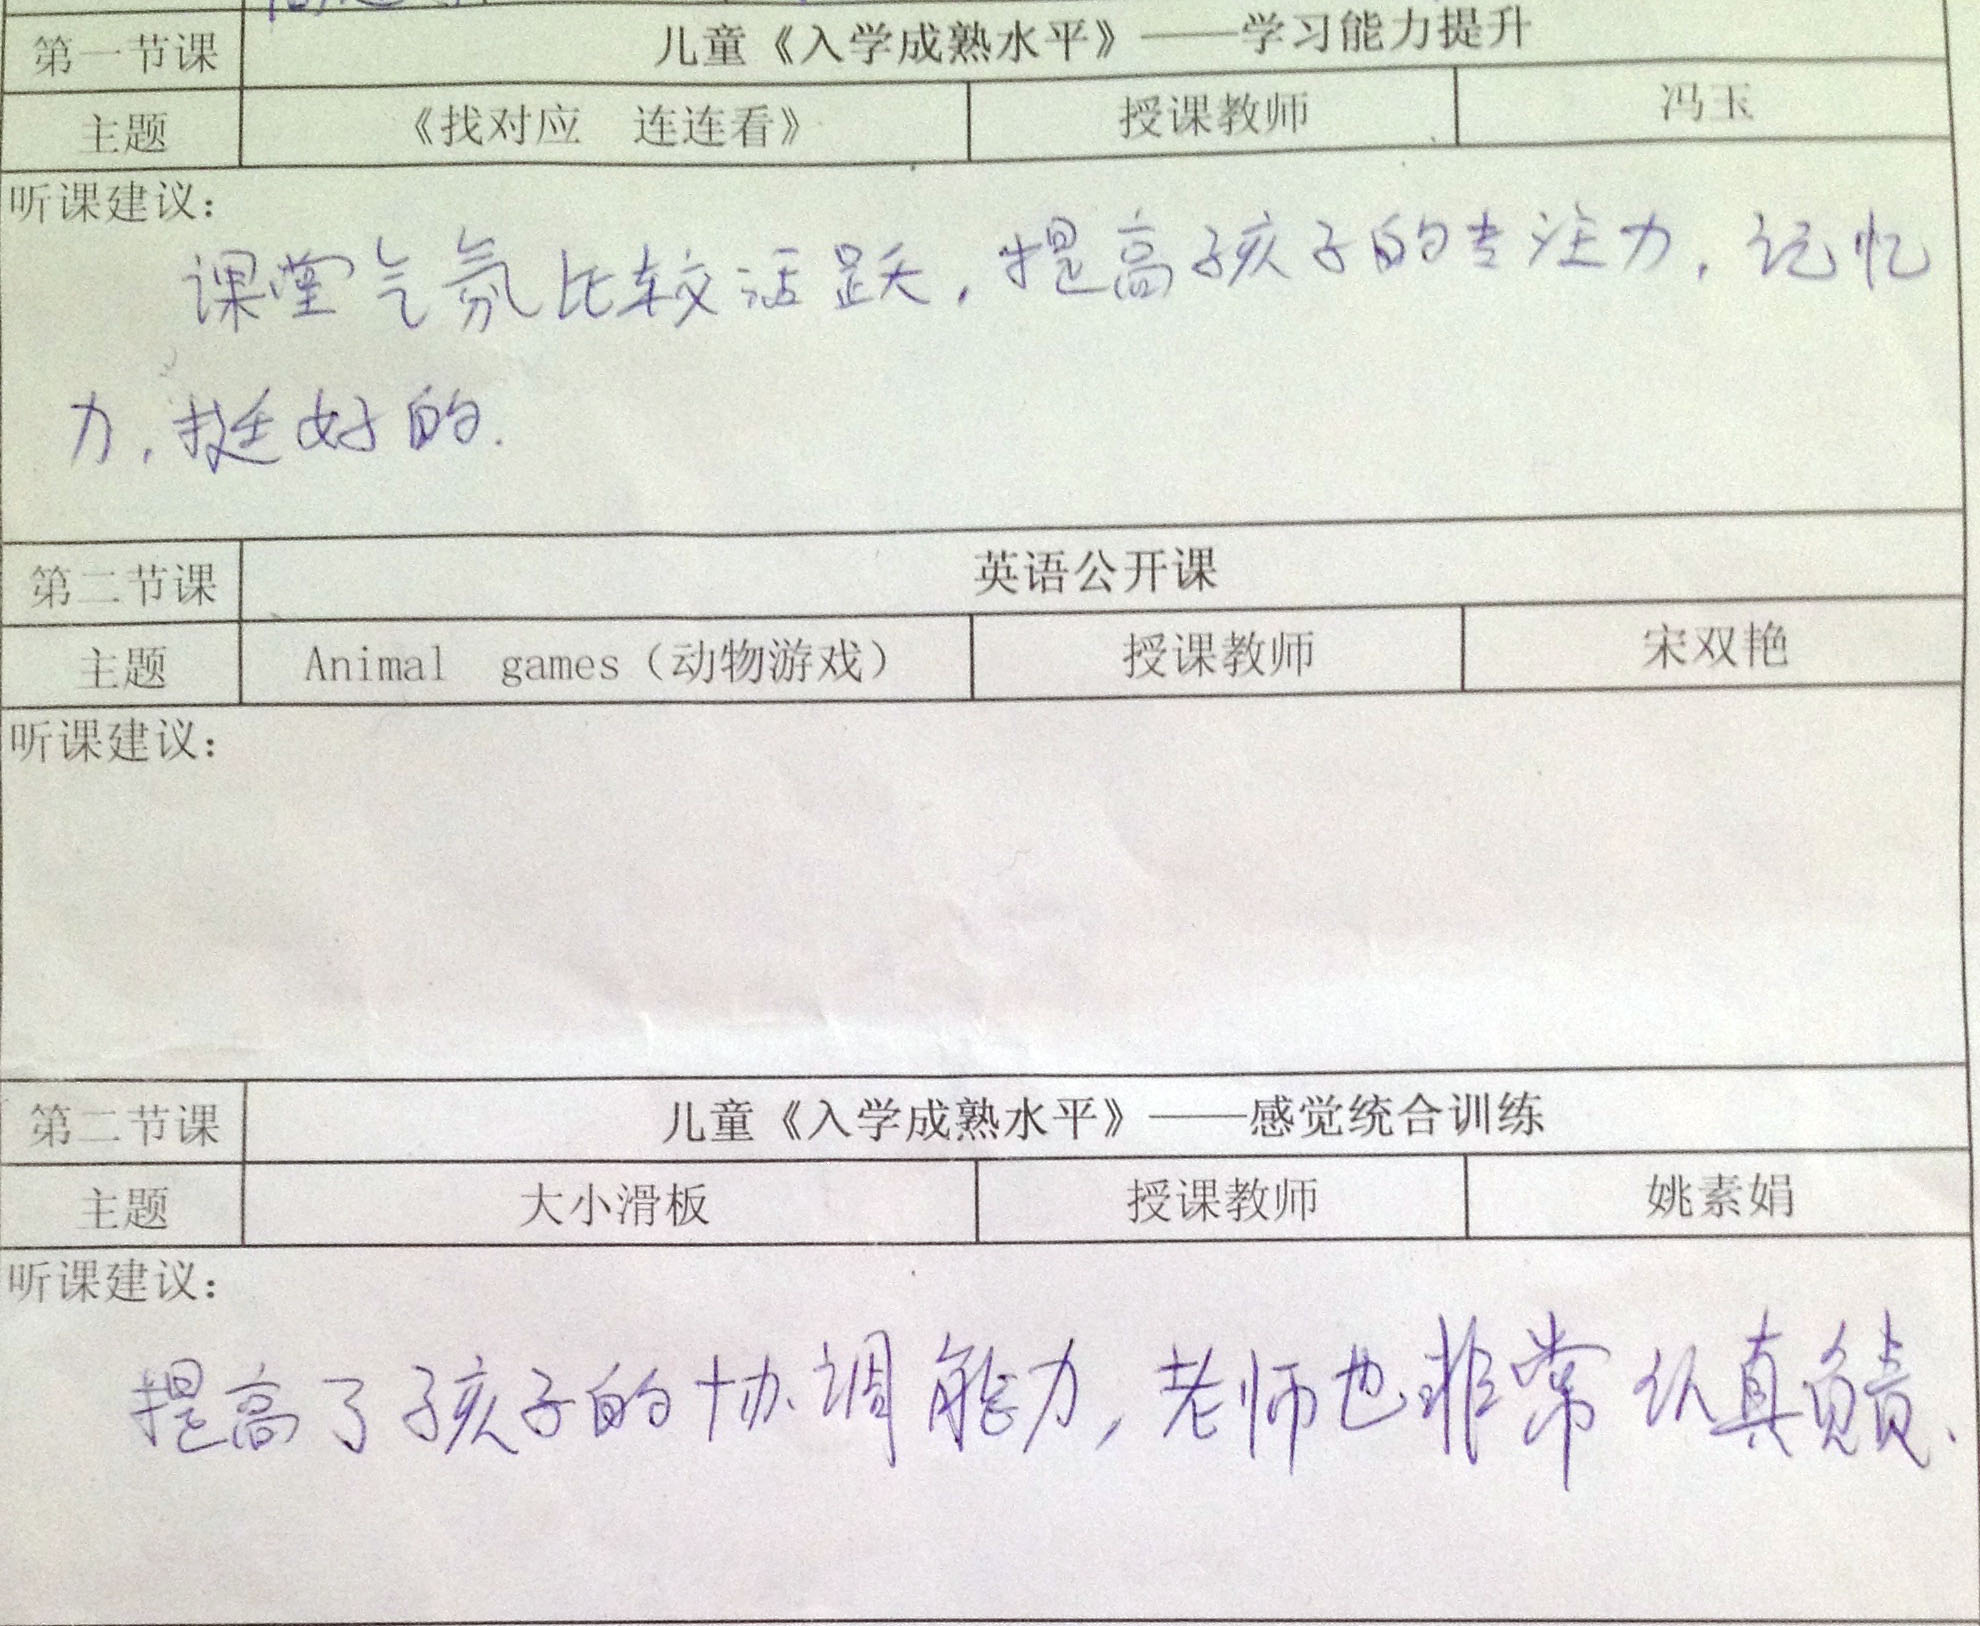 第一节课 儿童《入学成熟水平》——学习能力提升
主题 《找对应 连连看》 授课教师 冯玉
听课建议：
课堂气氛比较活跃，提高孩子的专注力，记忆
力，挺好的.
第二节课 英语公开课
主题 Animal games（动物游戏） 授课教师 宋双艳
听课建议：
第二节课 儿童《入学成熟水平》——感觉统合训练
主题 大小滑板 授课教师 姚素娟
听课建议：
提高了孩子的协调能力，老师也非常认真负责.